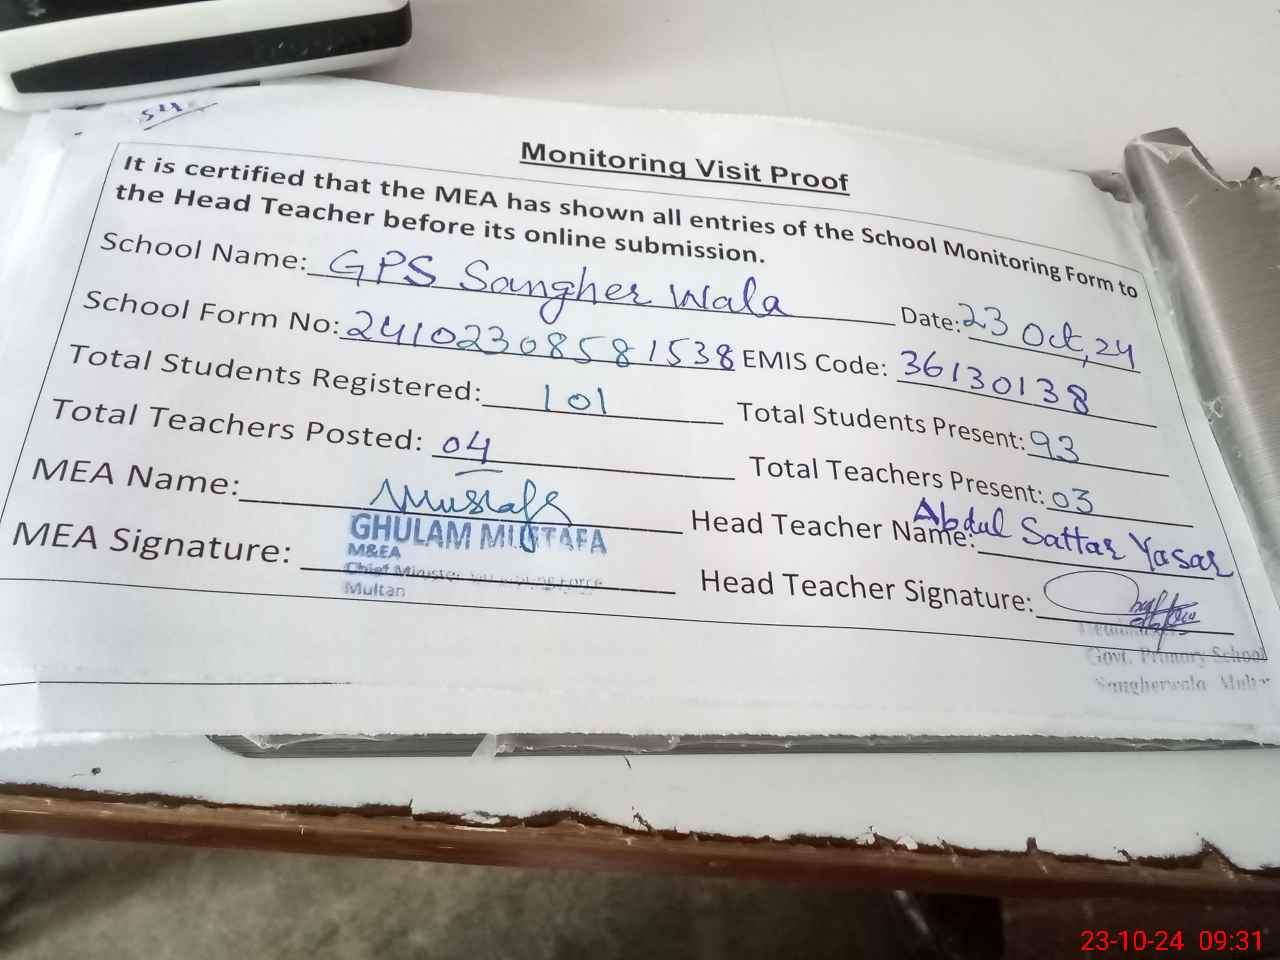 Monitoring Visit Proof
It is certified that the MEA has shown all entries of the School Monitoring Form to
the Head Teacher before its online submission.
School Name: GPS Sangher Wala Date: 23 Oct, 24
School Form No: 2410230858 1538 EMIS Code: 36130138
Total Students Registered: 101 Total Students Present: 93
Total Teachers Posted: 04 Total Teachers Present: 03
MEA Name: Mustafa Head Teacher Name: Abdul Sattar Yasar
MEA Signature: Head Teacher Signature:
GHULAM MUSTAFA
M&EA
Chief Minister
Multan
Govt. Primary School
Sangherwala Multan
23-10-24 09:31